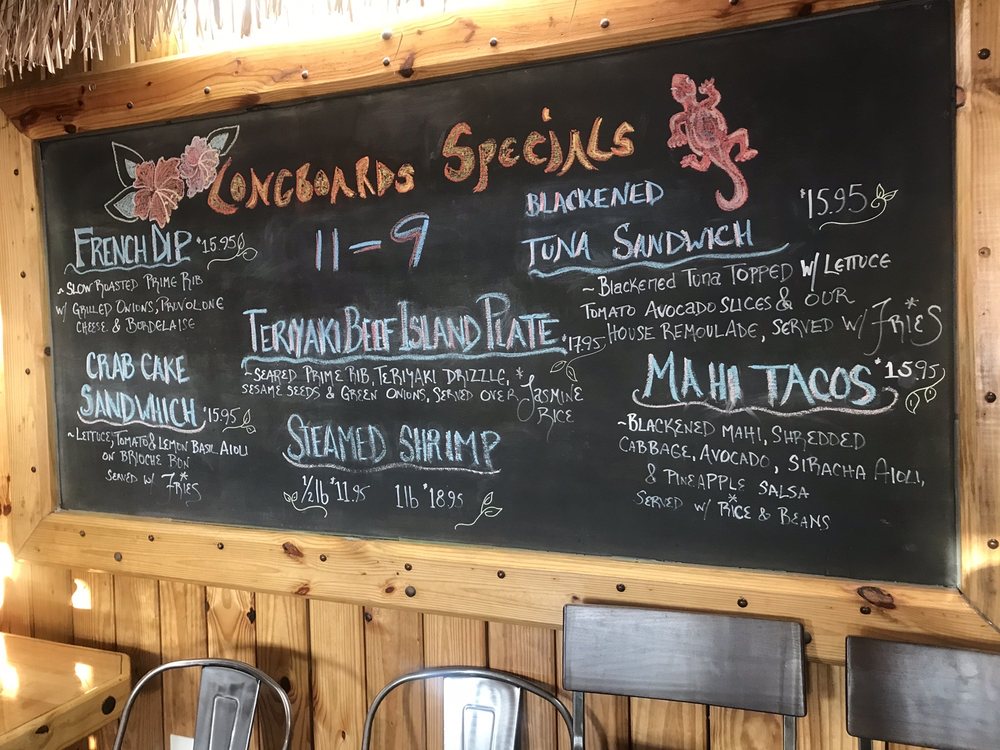 Longboards Specials
11-9
French Dip $15.95
~Slow Roasted Prime Rib
w/ Grilled Onions, Provolone
Cheese & Bordelaise
Crab Cake
Sandwhich $15.95
~Lettuce, Tomato & Lemon Basil Aioli
on Brioche Bun
Served w/ Fries*
Teriyaki Beef Island Plate $17.95
~Seared Prime Rib, Teriyaki Drizzle,
Sesame Seeds & Green Onions, Served over *Jasmine
Rice
Steamed Shrimp
1/2 lb $11.95 1 lb $18.95
Blackened
Tuna Sandwich $15.95
~Blackened Tuna Topped w/ Lettuce
Tomato Avocado Slices & our
House Remoulade, Served w/ Fries*
Mahi Tacos $15.95
~Blackened Mahi, Shredded
Cabbage, Avocado, Siracha Aioli,
& Pineapple Salsa
Served w/ *Rice & Beans